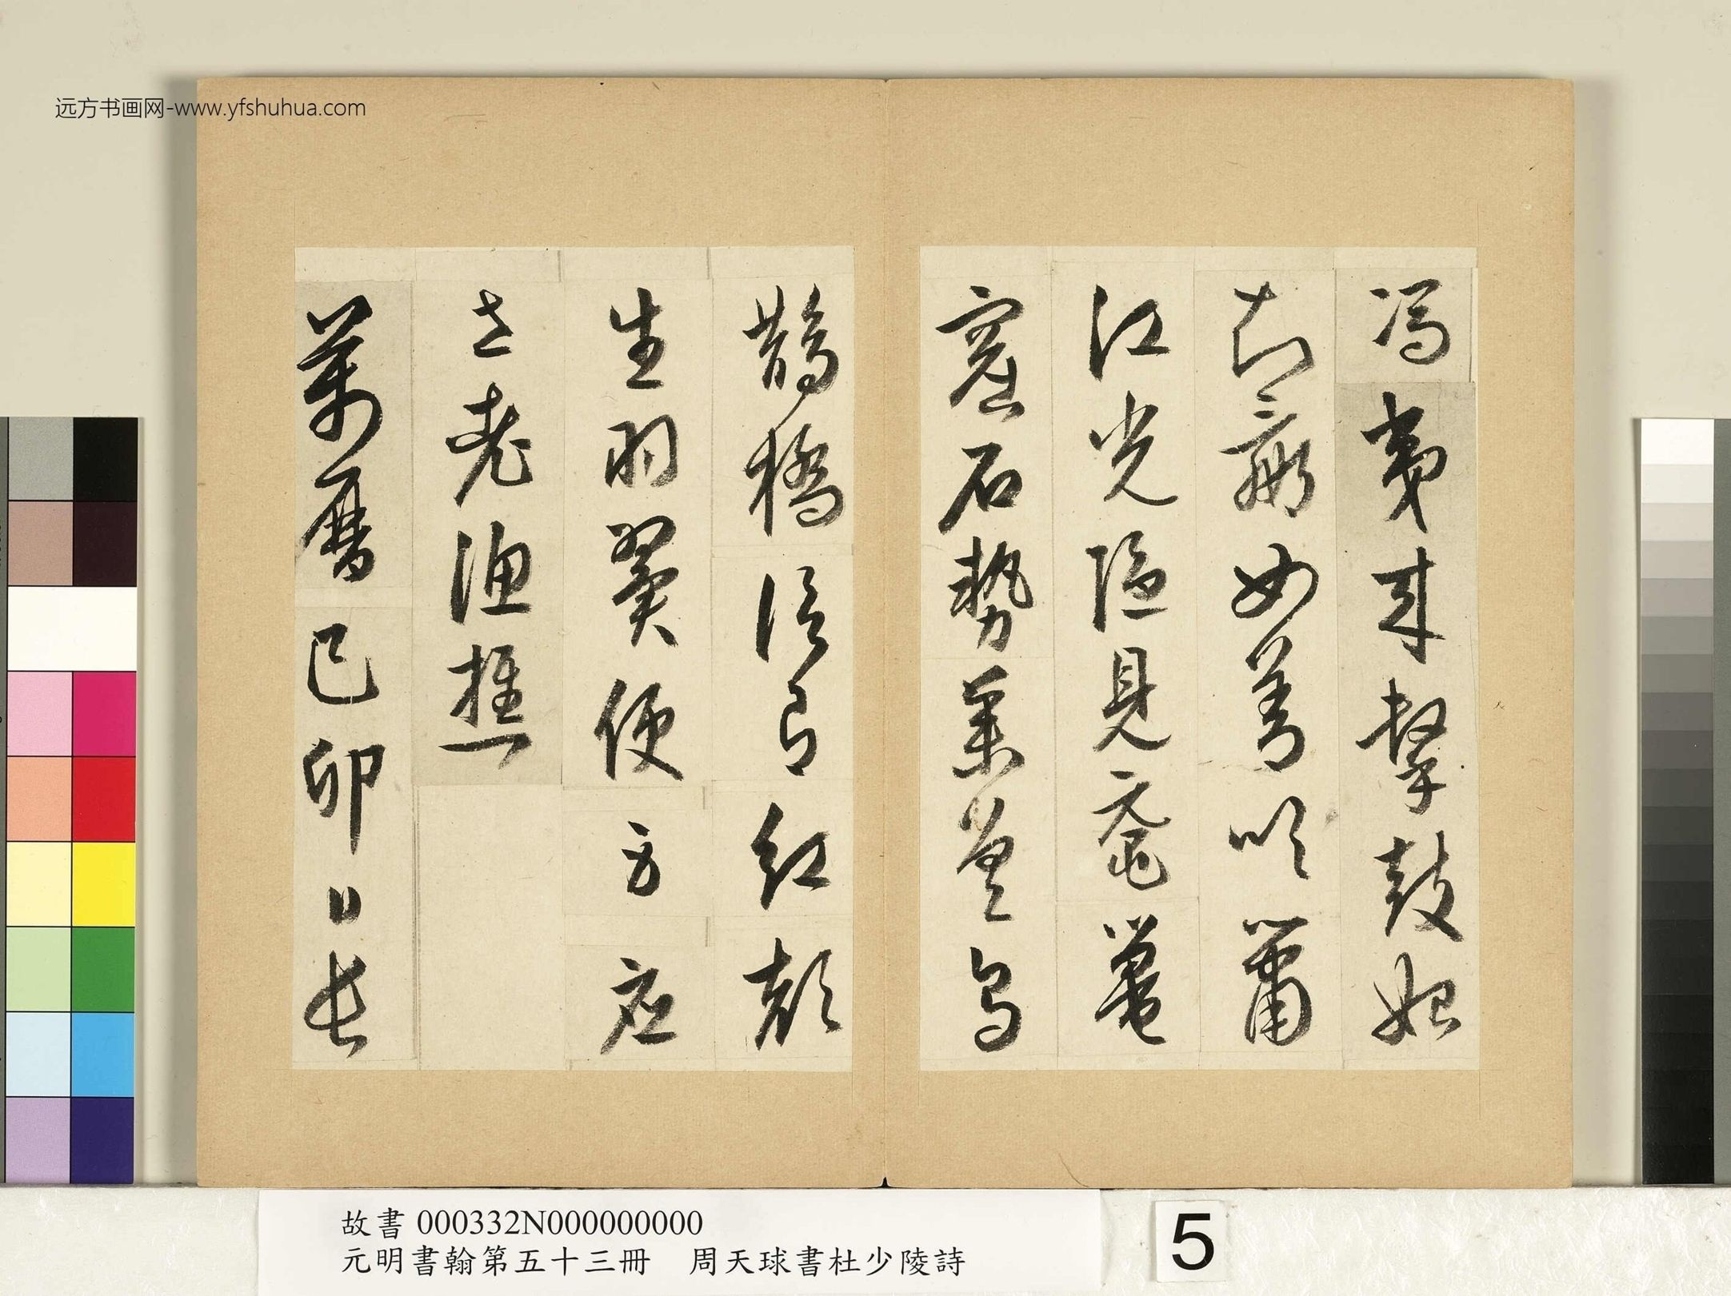 远方书画网-www.yfshuhua.com
馮夷來擊鼓始
知嬴女善吹簫
江光隱見黿鼉
窟石勢參差烏
鵲橋紅顏
生羽翼便方應
老漁樵
萬曆己卯日長
故書 000332N000000000
元明書翰第五十三冊 周天球書杜少陵詩
5